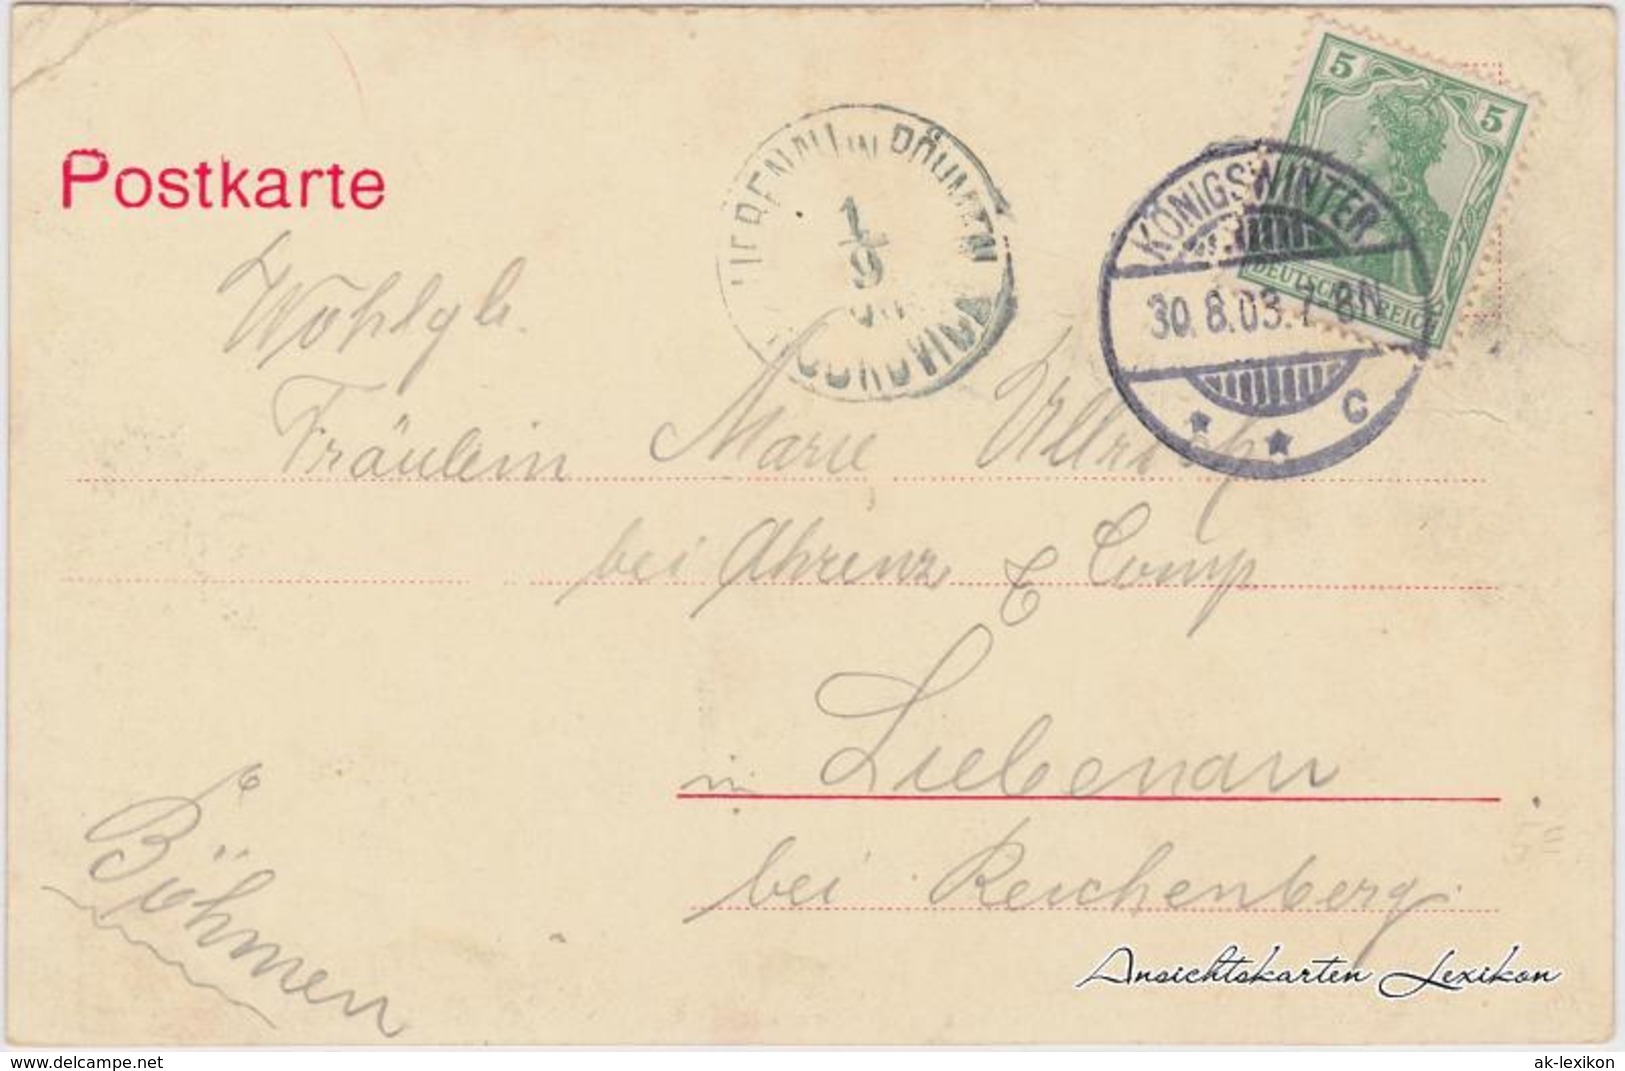 Postkarte
5
5
DEUTSCHES REICH
KÖNIGSWINTER
30.8.03.7-8N.
* * c
LIEBENAU IN BÖHMEN
1/9
HODKOVICE
Wohlgb.
Fräulein Marie Ullrich
bei Ahrenz & Comp
in Liebenau
bei Reichenberg.
Böhmen
Ansichtskarten Lexikon
www.delcampe.net
ak-lexikon